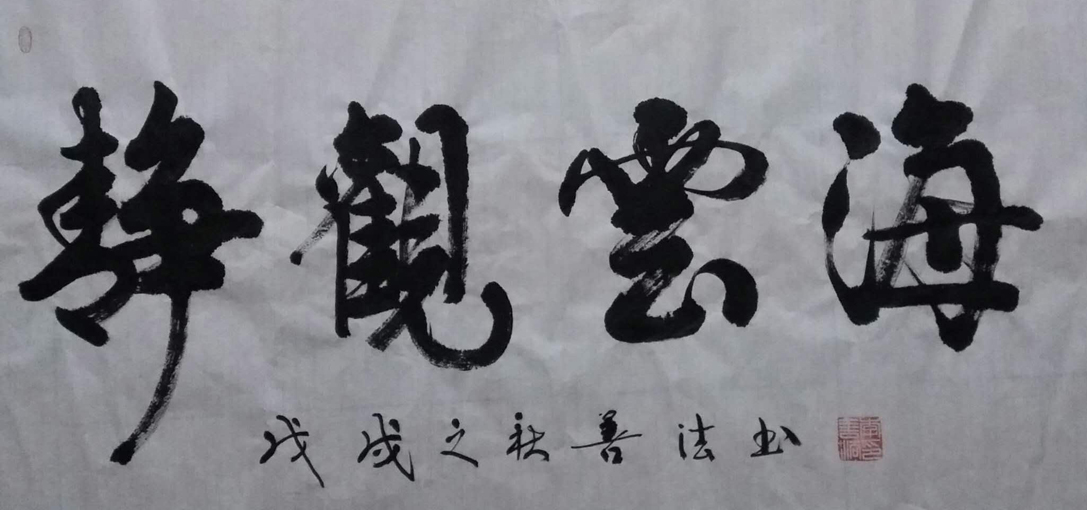 静觀雲海
戊戌之秋善法书